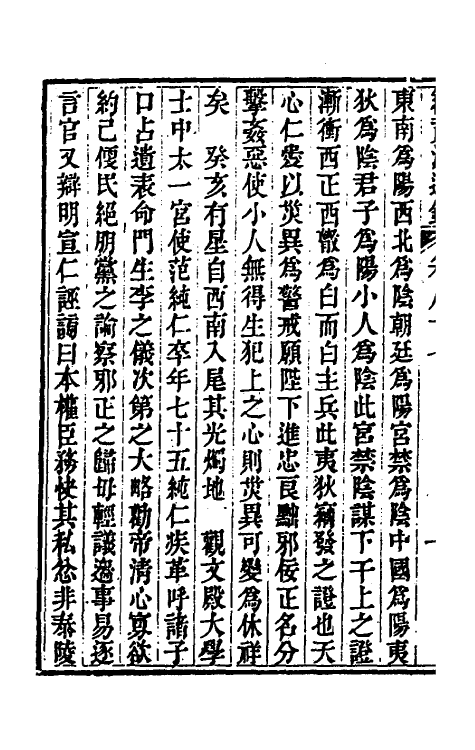 東南爲陽西北爲陰朝廷爲陽宮禁爲陰中國爲陽夷
狄爲陰君子爲陽小人爲陰此宮禁陰謀下干上之證
漸衝西正西散爲白而白主兵此夷狄竊發之證也天
心仁愛以災異爲警戒願陛下進忠良黜邪佞正名分
擊姦惡使小人無得生犯上之心則災異可變爲休祥
矣　癸亥有星自西南入尾其光燭地　觀文殿大學
士中太一宮使范純仁卒年七十五純仁疾革呼諸子
口占遺表命門生李之儀次第之大略勸帝清心寡欲
約己便民絕朋黨之論察邪正之歸毋輕議邊事易逐
言官又辯明宣仁誣謗曰本權臣務快其私忿非泰陵